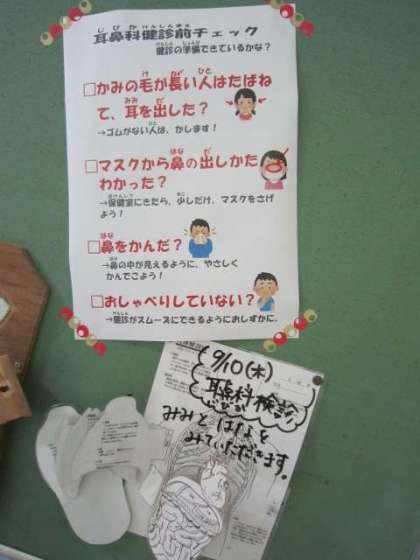 耳鼻科健診前チェック
健診の準備できているかな？
□かみの毛が長い人はたばね
て、耳を出した？
→ゴムがない人は、かします！
□マスクから鼻の出しかた
わかった？
→保健室にきたら、少しだけ、マスクをさげ
よう！
□鼻をかんだ？
→鼻の中が見えるように、やさしく
かんでこよう！
□おしゃべりしていない？
→健診がスムーズにできるようにおしずかに。
9/10(木)
耳鼻科検診
みみとはなを
みていただきます。